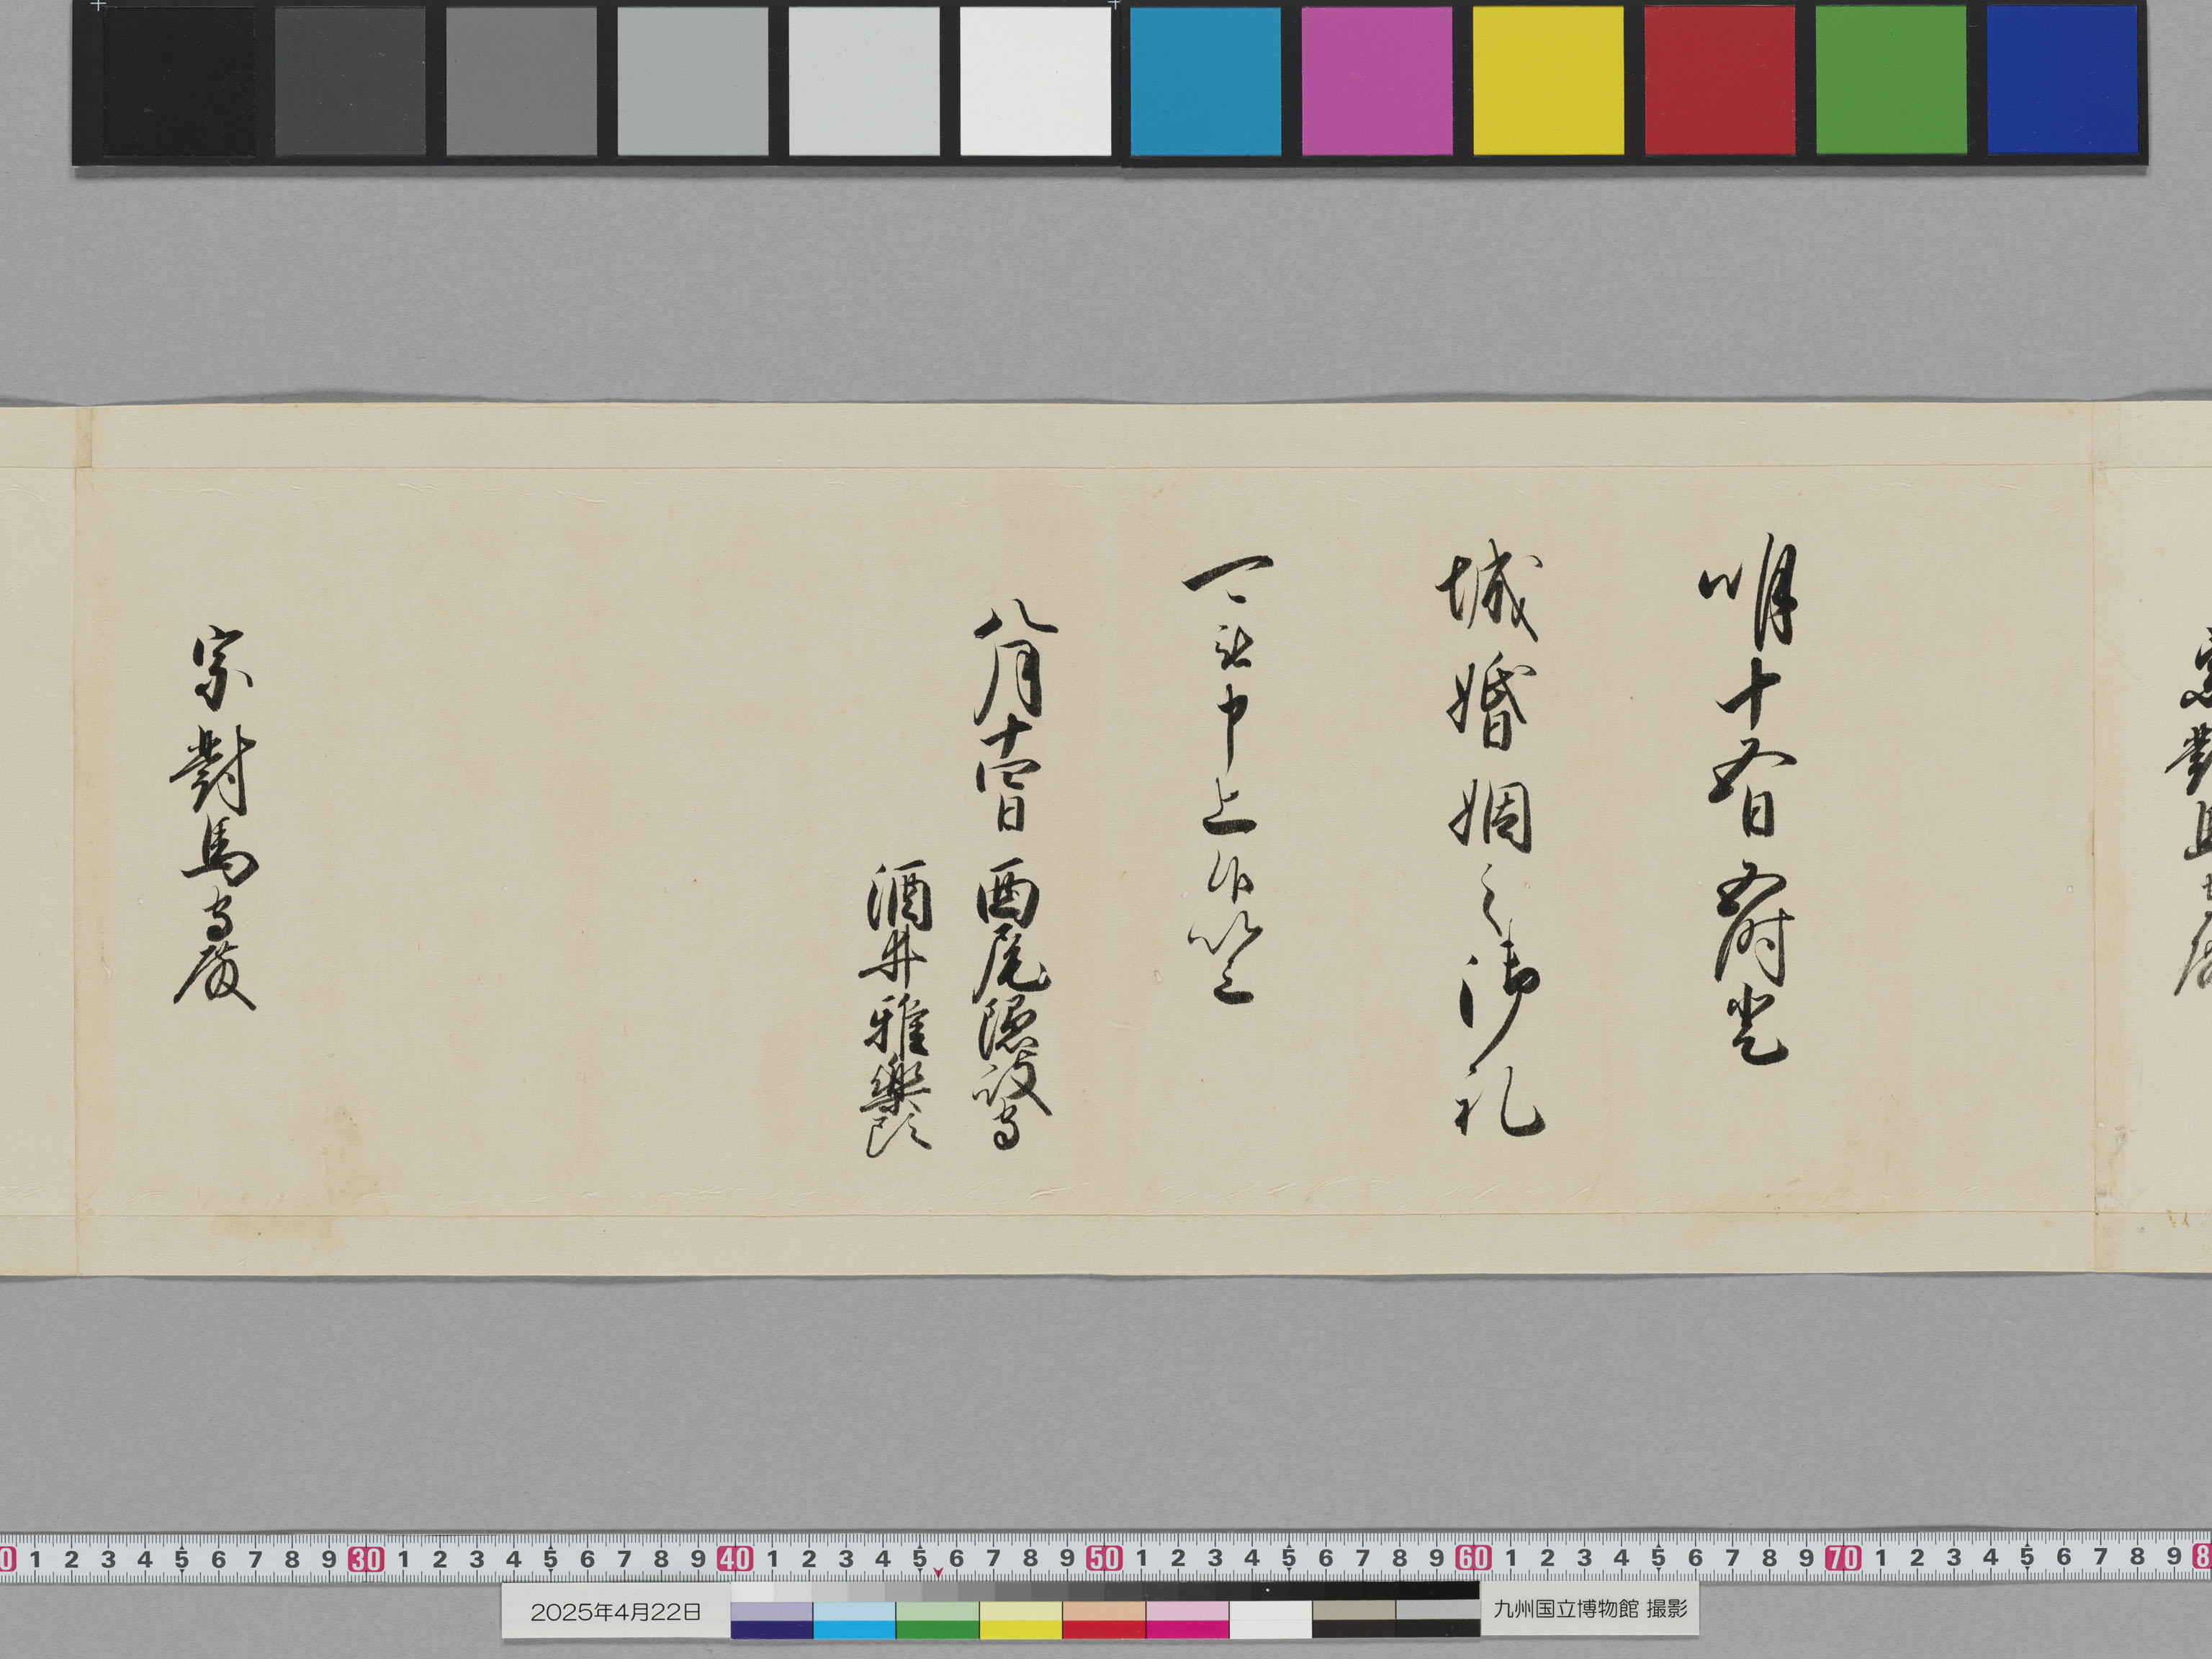 明十五日五時登
城婚姻之御礼
可被申上候以上
八月十四日 西尾隠岐守
酒井雅樂頭
宗對馬守殿
0 1 2 3 4 5 6 7 8 9 30 1 2 3 4 5 6 7 8 9 40 1 2 3 4 5 6 7 8 9 50 1 2 3 4 5 6 7 8 9 60 1 2 3 4 5 6 7 8 9 70 1 2 3 4 5 6 7 8 9 8
2025年4月22日
九州国立博物館 撮影